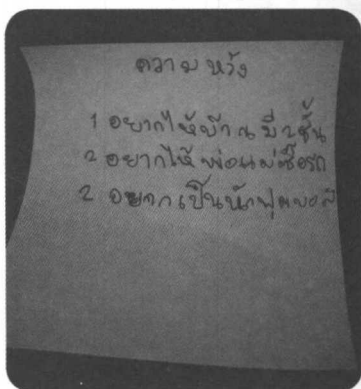 ความหวัง
1 อยากให้บ้านมี 2 ชั้น
2 อยากให้พ่อแม่ซื้อรถ
2 อยากเป็นนักฟุตบอล